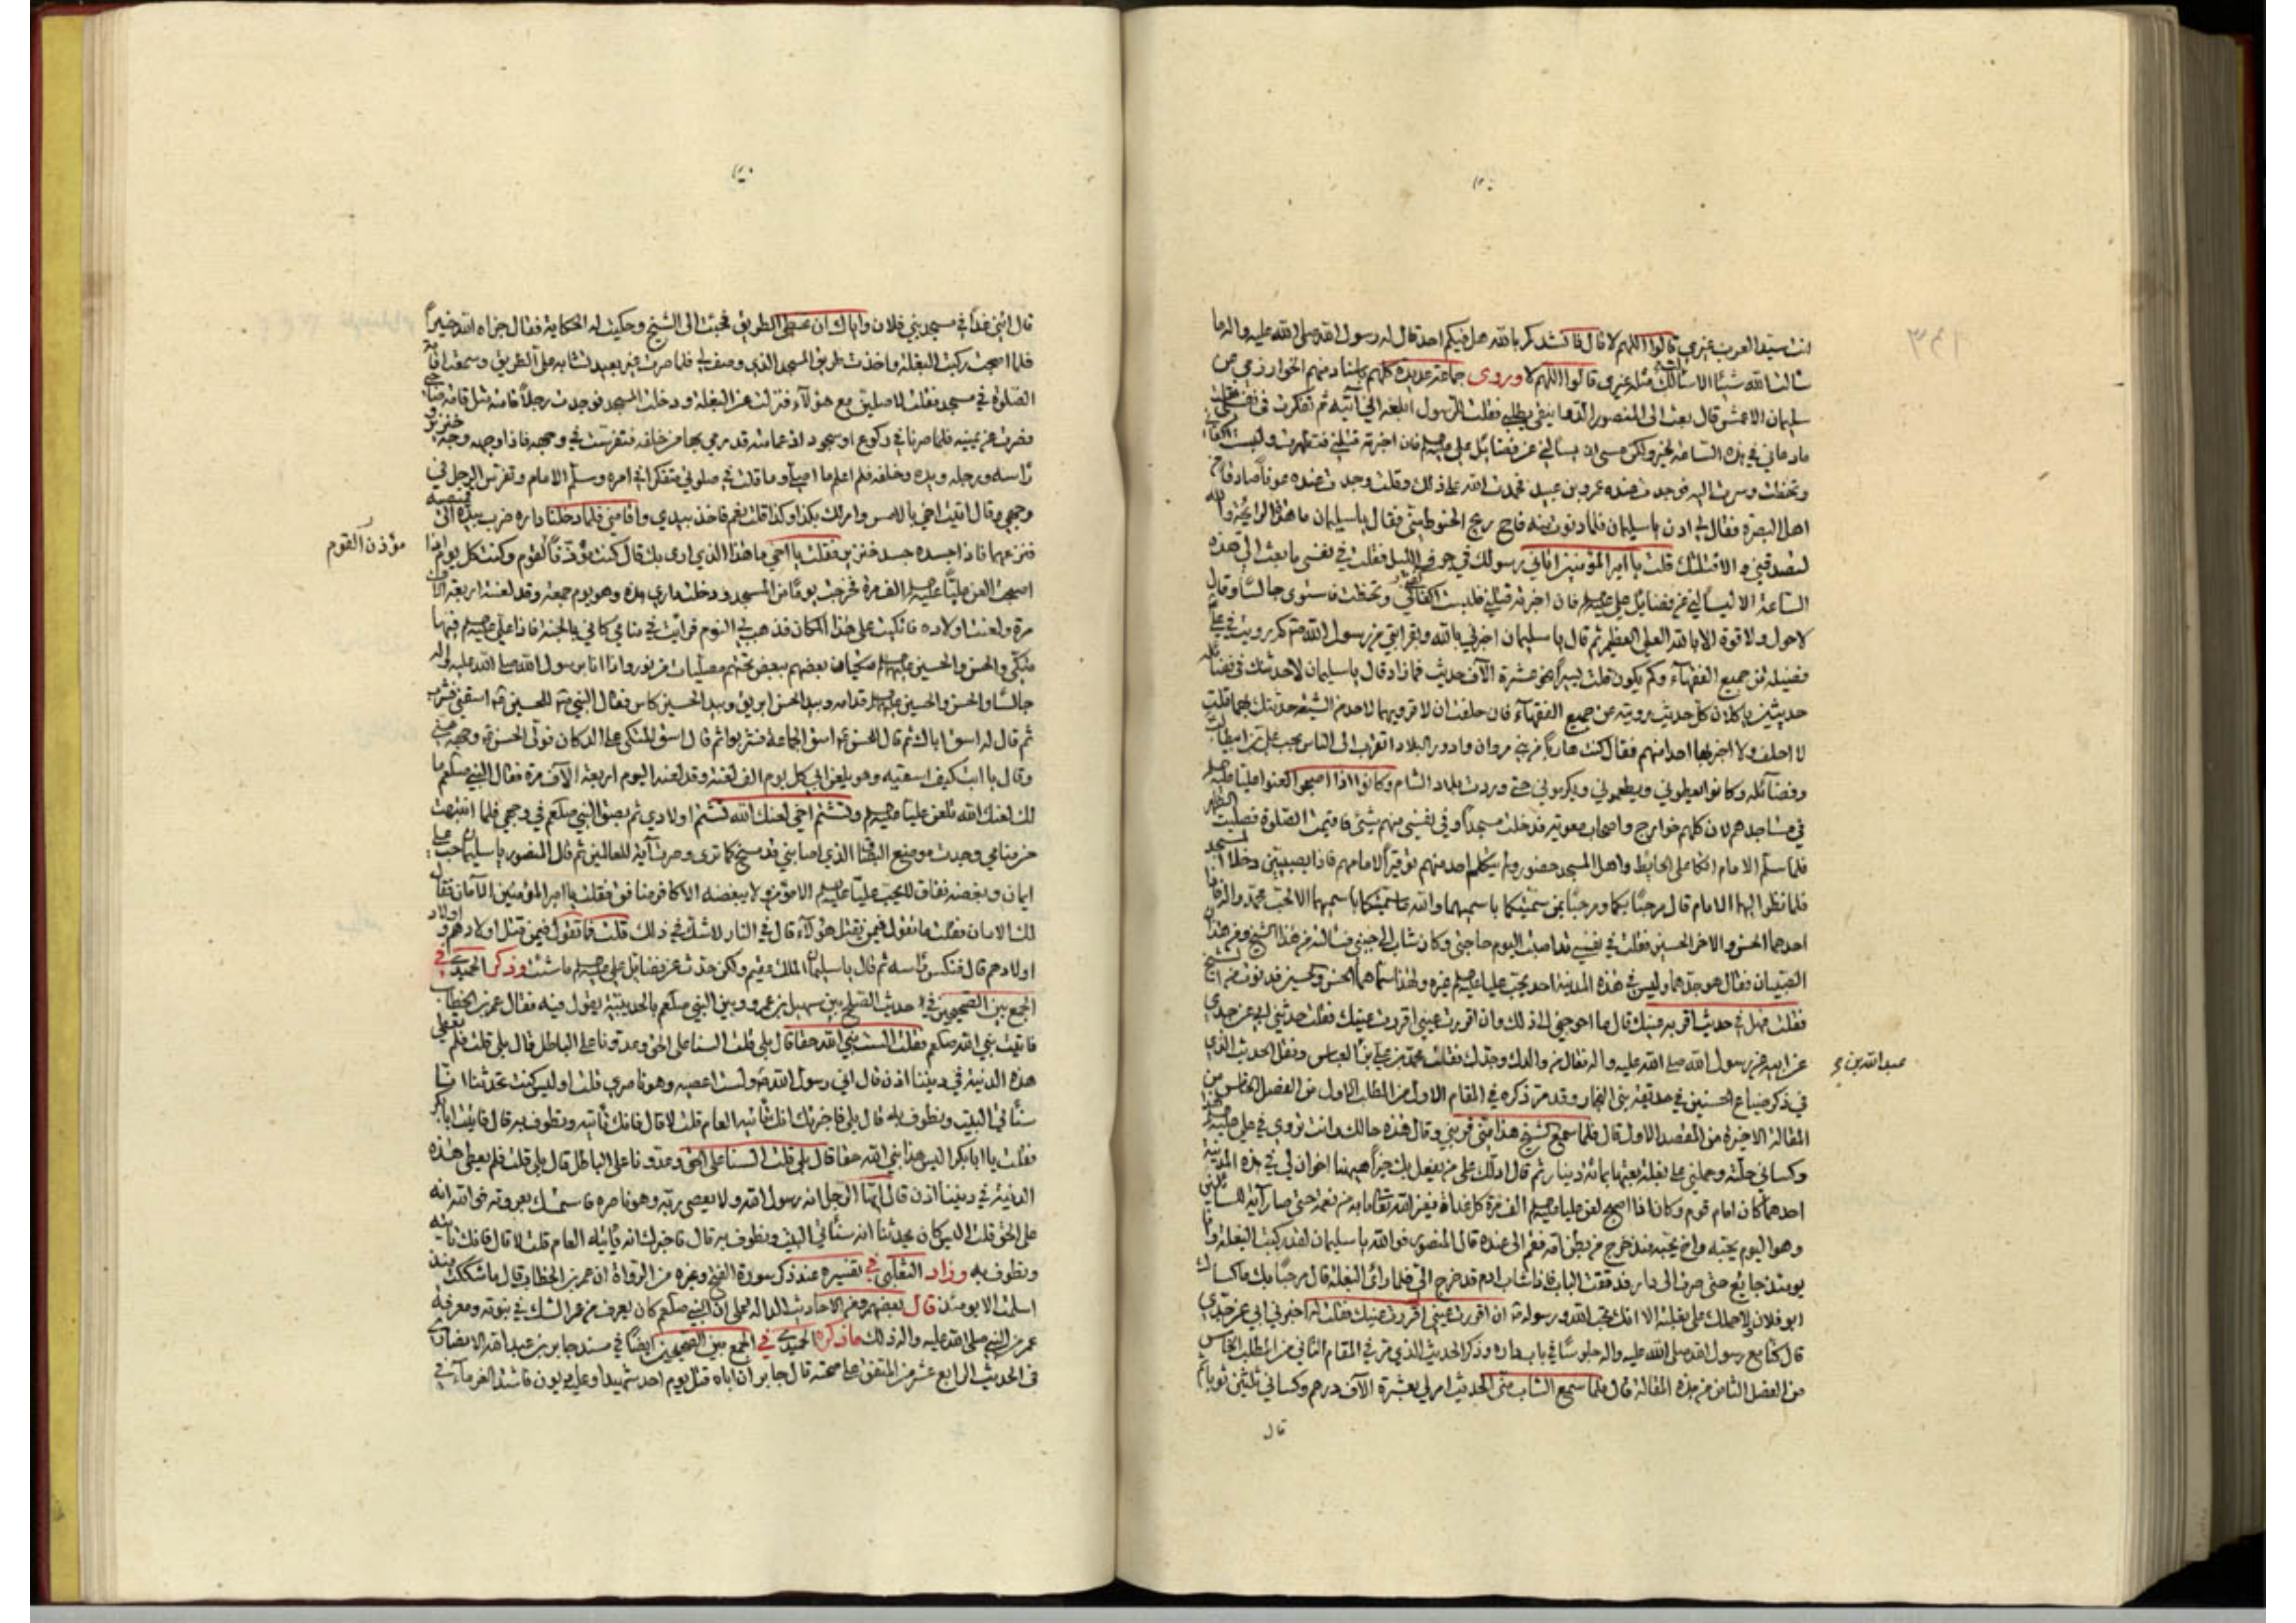 انت سيد العرب غيري قالوا اللهم لا قال فانشدكم بالله هل فيكم احد قال له رسول الله صلى الله عليه واله ما
سالت الله شيئا الا سالت لك مثله غيري قالوا اللهم لا وروى جماعة عديدة كلهم باسناد منهم الخوارزمي عن
سليمان الاعمش قال بعث الى المنصور فقلت للرسول ابلغه اني آتيه ثم تفكرت في نفسي فقلت
ما دعاني في هذه الساعة لخير ولكن عسى ان يسالني عن فضائل علي عليه السلم فان اخبرته قتلني فتطهرت ولبست اكفاني
وتحنطت وسرت اليه فوجدت عنده عمرو بن عبيد فحمدت الله على ذلك وقلت وجدت عنده عونا صادقا من
اهل البصرة فقال لي ادن يا سليمان فلما دنوت منه فاح ريح الحنوط مني فقال يا سليمان ما هذه الرايحة والله
لتصدقني والا قتلتك قلت يا امير المؤمنين اتاني رسولك في جوف الليل فقلت في نفسي ما بعث الي هذه
الساعة الا ليسالني عن فضايل علي عليه السلم فان اخبرته قتلني فلبست اكفاني وتحنطت فاستوى جالسا وقال
لا حول ولا قوة الا بالله العلي العظيم ثم قال يا سليمان اخبرني بالله وبقرابتي من رسول الله ص كم رويت في علي
فضيلة من جميع الفقهآء وكم يكون قلت يسيرا نحو عشرة الآف حديث فما زاد قال يا سليمان لاحدثنك في فضائله
حديثين ياكلان كل حديث رويته عن جميع الفقهآء فان حلفت ان لا ترويهما لاحد من الشيعة حدثتك بهما قلت
لا احلف ولا اخبر بهما احدا منهم فقال كنت هاربا من بني مروان وادور البلاد اتقرب الى الناس بحب علي بن ابيطالب
وفضائله وكانوا يعطوني ويطعموني ويكرموني حتى وردت بلاد الشام وكانوا اذا اصبحوا لعنوا عليا عليه السلم
في مساجدهم لان كلهم خوارج واصحاب معوية فدخلت مسجدا وفي نفسي منهم شئ فاقيمت الصلوة فصليت الظهر
فلما سلم الامام اتكا على الحائط واهل المسجد حضور ولم يتكلم احد منهم توقيرا لامامهم فاذا بصبيين دخلا المسجد
فلما نظر اليهما الامام قال مرحبا بكما ومرحبا بمن سميتكما باسميهما والله ما سميتكما باسميهما الا لحب محمد وال محمد فاذا
احدهما الحسن والاخر الحسين فقلت في نفسي قد اصبت اليوم حاجتي وكان شاب الى جنبي فسالته من هذا الشيخ ومن هذان
الصبيان فقال هو جدهما وليس في هذه المدينة احد يحب عليا عليه السلم غيره ولهذا سماهما الحسن والحسين فدنوت من الشيخ
فقلت هل لك في حديث اقر به عينك قال ما احوجني الى ذلك وان اقررت عيني اقررت عينك فقلت حدثني ابي عن جدي
عن ابيه عن رسول الله صلى الله عليه واله فقال من والدك وجدك فقلت محمد بن علي بن العباس ونقل الحديث الذي
عبد الله بن
في ذكر ضياع الحسنين في حديقة بني النجار وقد مر ذكره في المقام الاول من المطلب الاول من الفصل الخامس من
المقالة الاخيرة من المقصد الاول قال فلما سمع الشيخ هذا مني قربني وقال هذه حالك وانت تروي في علي عليه السلم هذا
وكساني حلة وحملني على بغلة بعتها بمائة دينار ثم قال ادلك على من يفعل بك خيرا ههنا اخوان لي في هذه المدينة
احدهما كان امام قوم وكان اذا اصبح لعن عليا عليه السلم الف مرة كل غداة فغير الله تعالى ما به من نعمة حتى صار آية للسائلين
وهو اليوم يحبه واخ يحبه منذ خرج من بطن امه فقم الى عنده قال المنصور فوالله يا سليمان لقد ركبت البغلة وانا
يومئذ جايع حتى صرت الى دار فدققت الباب فاذا شاب ادم قد خرج الي فلما راى البغلة قال مرحبا بك ما كساك
ابو فلان ولا حملك على بغلته الا انك تحب الله ورسوله ان اقررت عيني اقررت عينك فقلت له اخبرني ابي عن جدي
قال كنا مع رسول الله صلى الله عليه واله جلوسا في باب داره وذكر الحديث الذي مر في المقام الثاني من المطلب الخامس
من الفصل الثامن من هذه المقالة قال فلما سمع الشاب مني الحديث امر لي بعشرة الآف درهم وكساني ثلثين ثوبا ثم
قال
قال ائتني غدا في مسجد بني فلان واياك ان تخطي الطريق فجئت الى الشيخ وحكيت له الحكاية فقال جزاه الله خيرا
فلما اصبحت ركبت البغلة واخذت طريق المسجد الذي وصف لي فلما صرت غير بعيد تشابه علي الطريق وسمعت اقامة
الصلوة في مسجد فقلت لاصلين مع هؤلآء فنزلت عن البغلة ودخلت المسجد فوجدت رجلا قامته مثل قامة صاحبي
فصرت عن يمينه فلما صرنا في ركوع او سجود اذ عمامته قد رمي بها من خلفه فتفرست في وجهه فاذا وجهه وجه خنزير
راسه ورجله ويده وخلفه فلم اعلم ما اصلي وما قلت في صلوتي متفكرا في امره وسلم الامام وتفرس الرجل في
وجهي وقال اتيت اخي بالامس وامر لك بكذا وكذا قلت نعم فاخذ بيدي واقامني فلما دخلنا داره ضرب بيده الى قميصه
فنزعهما فاذا جسده جسد خنزير فقلت يا اخي ما هذا الذي ارى بك قال كنت مؤذن القوم وكنت كل يوم اذا
مؤذن القوم
اصبحت العن عليا عليه السلم الف مرة فخرجت يوما من المسجد ودخلت داري هذه وهو يوم جمعة وقد لعنته اربعة الاف
مرة ولعنت اولاده فاتكيت على هذا المكان فذهب بي النوم فرايت في منامي كاني بالجنة فاذا علي عليه السلم فيها
متكئ والحسن والحسين عليهم السلم متكيان بعضهم ببعض تحتهم مصليات من نور واذا انا برسول الله صلى الله عليه واله
جالسا والحسن والحسين عليهما السلم قدامه وبيد الحسن ابريق وبيد الحسين كاس فقال النبي ص للحسين اسقني فشرب
ثم قال له اسق اباك ثم قال للحسن اسق الجماعة فشربوا ثم قال اسق المتكي على الدكان فولى الحسن وجهه عني
وقال يا ابت كيف اسقيه وهو يلعن ابي كل يوم الف لعنة وقد لعنه اليوم اربعة الآف مرة فقال النبي صلعم ما
لك لعنك الله تلعن عليا عليه السلم وتشتم اخي لعنك الله تشتم اولادي ثم بصق النبي صلعم في وجهي فلما انتبهت
من منامي وجدت موضع البصاق الذي اصابني قد مسخ كما ترى وصرت آية للعالمين ثم قال المنصور يا سليمان حب علي
ايمان وبغضه نفاق لا يحب عليا عليه السلم الا مؤمن ولا يبغضه الا كافر منافق فقلت يا امير المؤمنين الآمان فقال
لك الامان فقلت ما تقول فيمن يقتل هؤلآء قال في النار لا شك في ذلك قلت فما تقول فيمن قتل اولادهم واولاد
اولادهم قال فنكس راسه ثم قال يا سليمان الملك عقيم ولكن حدث عن فضائل علي عليه السلم ما شئت وذكر الحميدي في
الجمع بين الصحيحين في حديث الصلح بين سهيل بن عمرو وبين النبي صلعم بالحديبية يقول فيه فقال عمر بن الخطاب
فاتيت نبي الله صلعم فقلت الست نبي الله حقا قال بلى قلت السنا على الحق وعدونا على الباطل قال بلى قلت فلم نعطى
هذه الدنية في ديننا اذن قال اني رسول الله ولست اعصيه وهو ناصري قلت اوليس كنت تحدثنا انا
سناتي البيت ونطوف به قال بلى فاخبرتك انك تاتيه العام قلت لا قال فانك تاتيه وتطوف به قال فاتيت ابا بكر
فقلت يا ابا بكر اليس هذا نبي الله حقا قال بلى قلت السنا على الحق وعدونا على الباطل قال بلى قلت فلم نعطى هذه
الدنية في ديننا اذن قال ايها الرجل انه رسول الله ولا يعصي ربه وهو ناصره فاستمسك بعروته فوالله انه
على الحق قلت اليس كان يحدثنا انه سناتي البيت ونطوف به قال فاخبرك انه ياتيه العام قلت لا قال فانك تاتيه
وتطوف به وزاد الثعلبي في تفسيره عند ذكر سورة الفتح وغيره من الرواة ان عمر بن الخطاب قال ما شككت منذ
اسلمت الا يومئذ قال بعضهم وهذه الاحاديث الدالة على ان النبي صلعم كان يعرف من عمر الشك في نبوته ومعرفة
عمر من النبي صلى الله عليه واله ذلك ما ذكره الحميدي في الجمع بين الصحيحين ايضا في مسند جابر بن عبد الله الانصاري
في الحديث الرابع عشر من المتفق على صحته قال جابر ان اباه قتل يوم احد شهيدا وعليه ديون فاشتد الغرمآء في